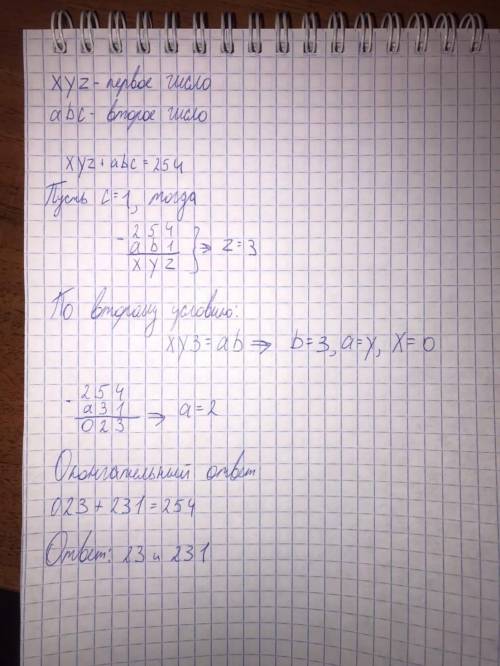 xyz - первое число
abc - второе число
xyz + abc = 254
Пусть c=1, тогда
- 254
ab1
xyz } ⇒ z=3
По второму условию:
xy3 = ab ⇒ b=3, a=y, x=0
- 254
a31
023 ⇒ a=2
Окончательний ответ
023 + 231 = 254
Ответ: 23 и 231